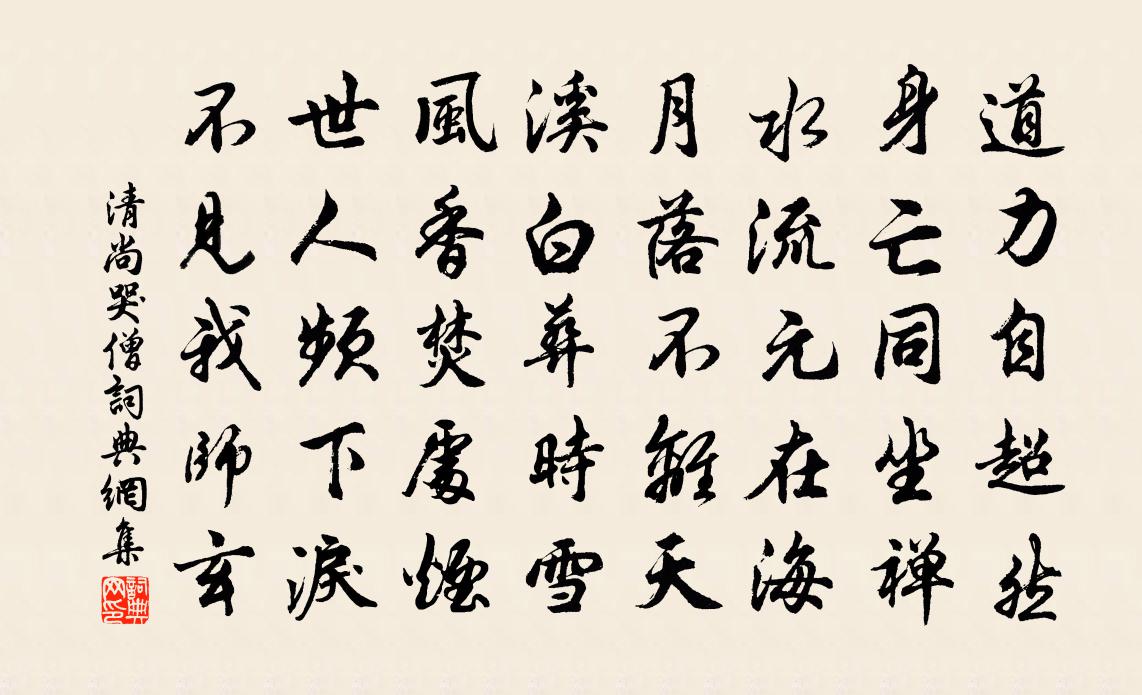 道力自超然
身亡同坐禅
水流元在海
月落不離天
溪白葬時雪
風香焚處煙
世人頻下淚
不見我師玄
清尚哭僧詞典網集
詞典網印